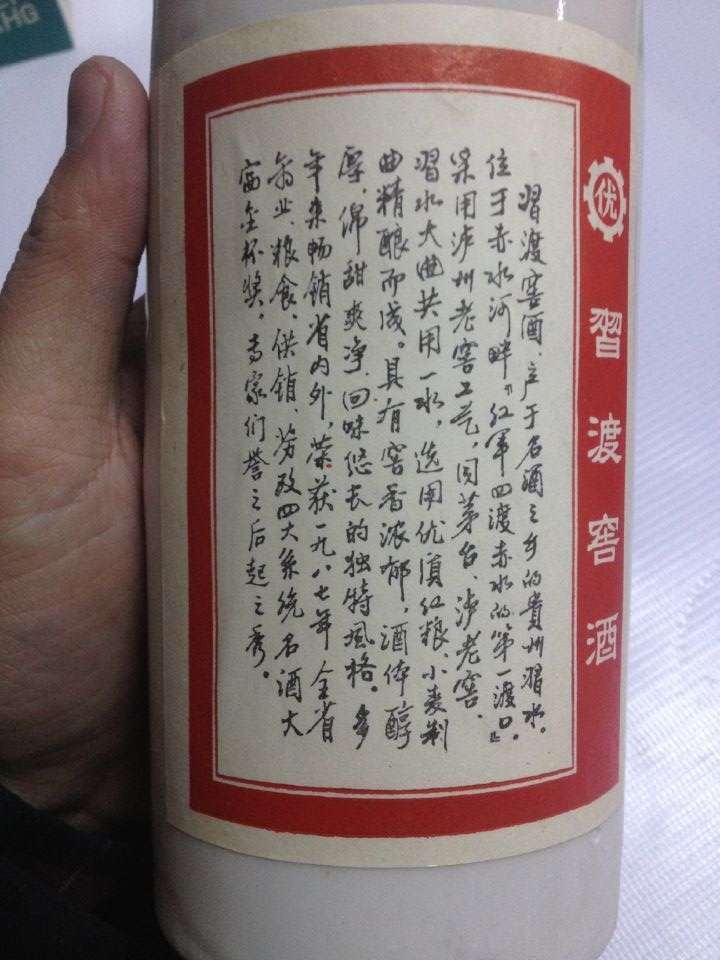 优
習渡窖酒
習渡窖酒、产于名酒之乡的貴州習水。
位于赤水河畔“红军四渡赤水的第一渡口”。
采用泸州老窖工艺，同茅台、泸老窖、
習水大曲共用一水，选用优质红粮小麦制
曲精酿而成。具有窖香浓郁，酒体醇
厚，绵甜爽净，回味悠长的独特風格。多
年来畅销省内外，荣获一九八七年全省
商业、粮食、供销、劳改四大系统名酒大
窖金杯奖。专家们誉之后起之秀。
HG